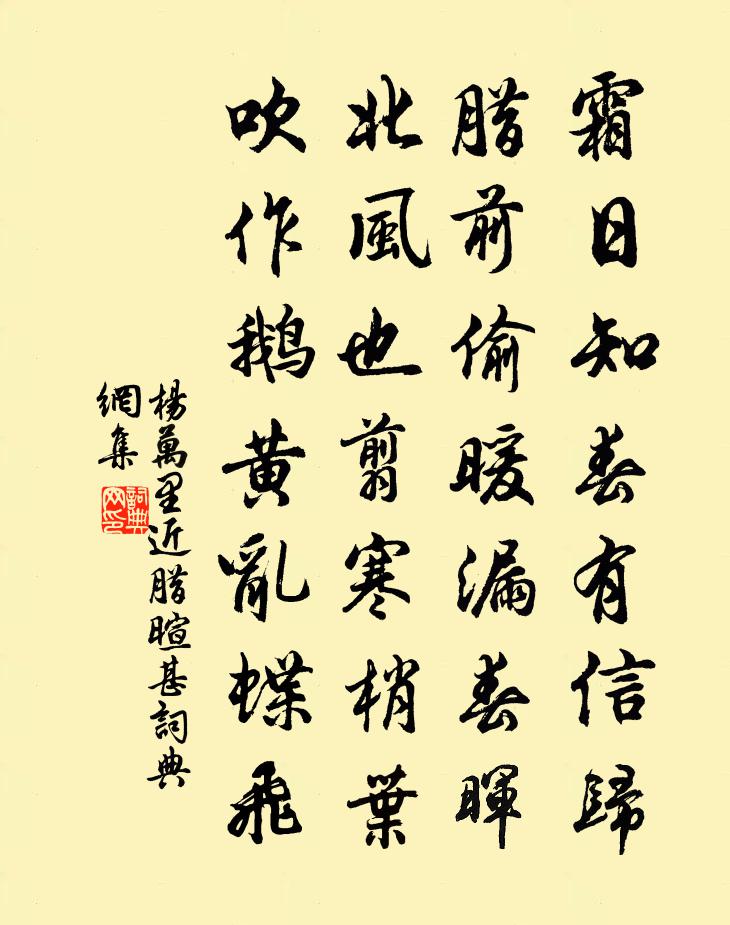 霜日知春有信歸
腊前偷暖漏春暉
北風也翦寒梢葉
吹作鹅黄亂蝶飛
楊萬里近腊暄甚詞典
網集
詞典
网印